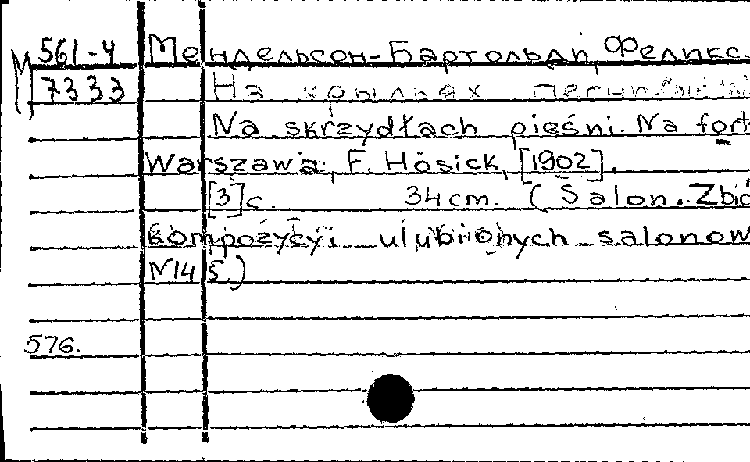 М 561-4 Мендельсон-Бартольди, Феликс.
7333 На крыльях песни
Na skrzydłach pieśni. Na fort
Warszawa, F. Hösick, [1902].
[3]с. 34cm. (Salon. Zbió
kompozycyi ulubionych salonow
N145.)
576.